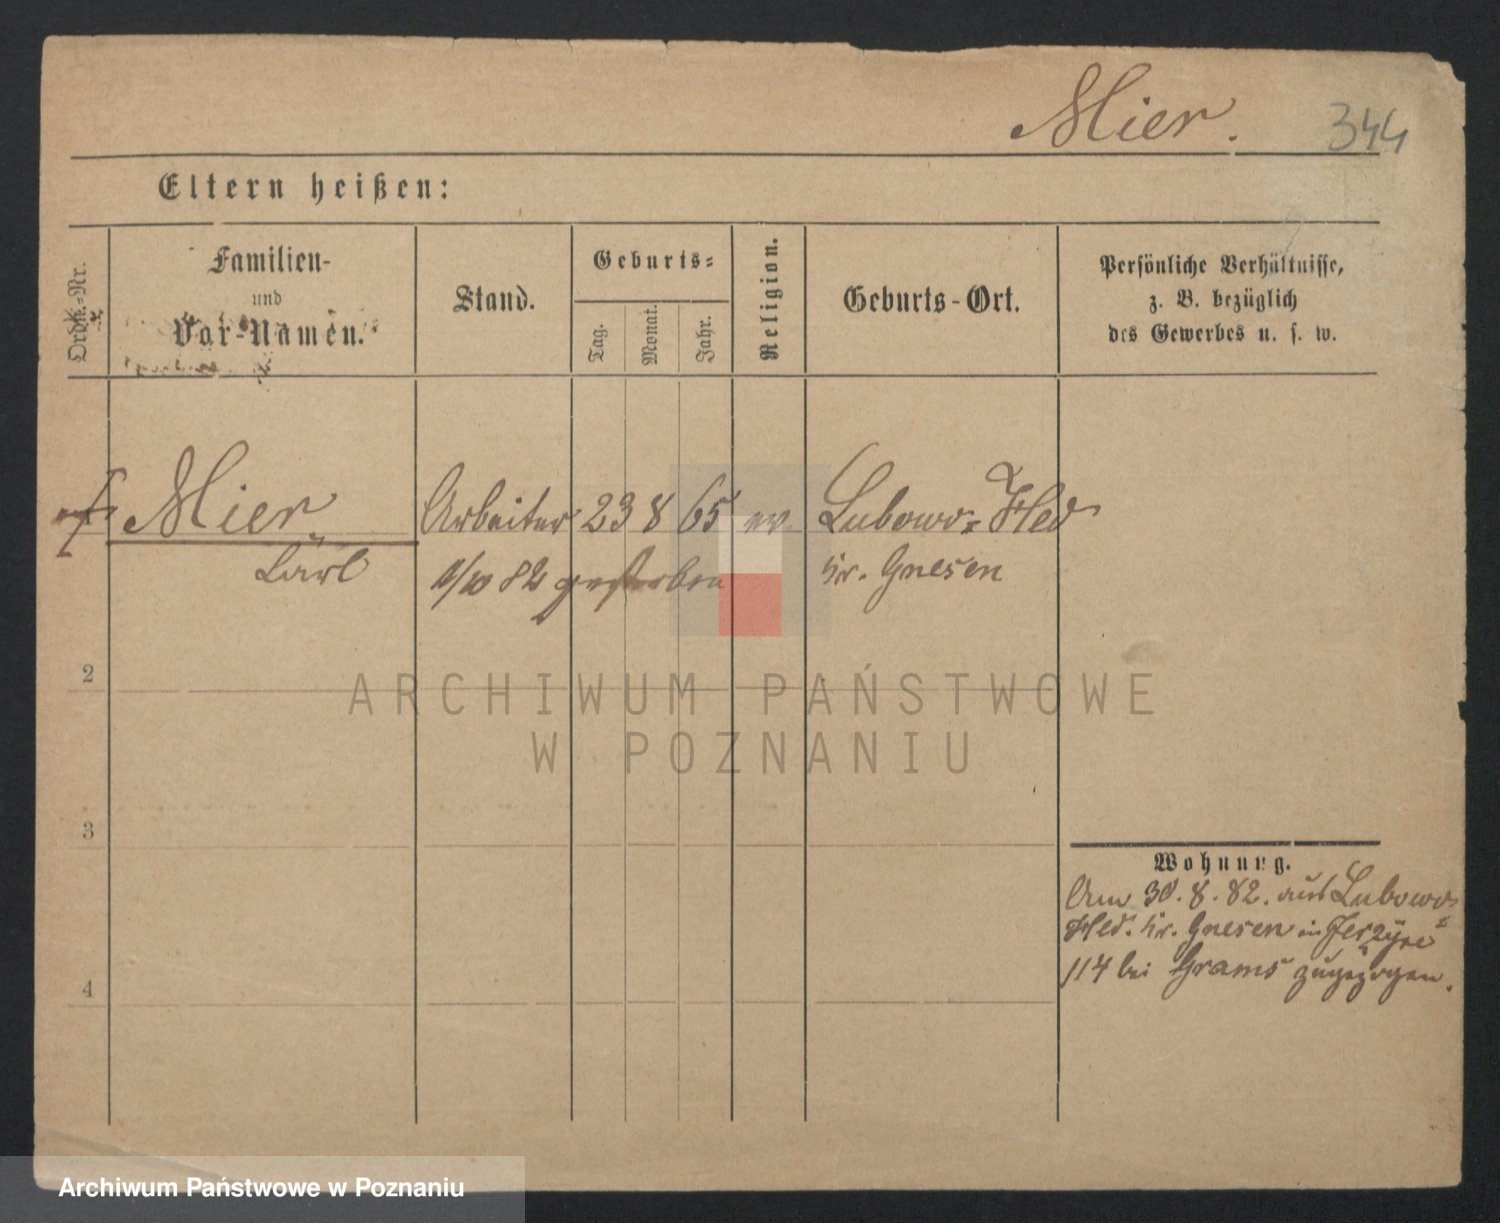 Mier.
344
Eltern heißen:
Ordn.-Nr.
Familien-
und
Vor-Namen.
Stand.
Geburts-
Tag.
Monat.
Jahr.
Religion.
Geburts-Ort.
Persönliche Verhältnisse,
z. B. bezüglich
des Gewerbes u. s. w.
Mier Arbeiter 23 8 65 ev Lubowo-Hld
Carl /10 82 gestorben Kr. Gnesen
2
3
4
Wohnung.
Am 30.8.82. aus Lubowo-
Hld. Kr. Gnesen in Jerzyce
114 bei Grams zugezogen.
ARCHIWUM PAŃSTWOWE
W POZNANIU
Archiwum Państwowe w Poznaniu